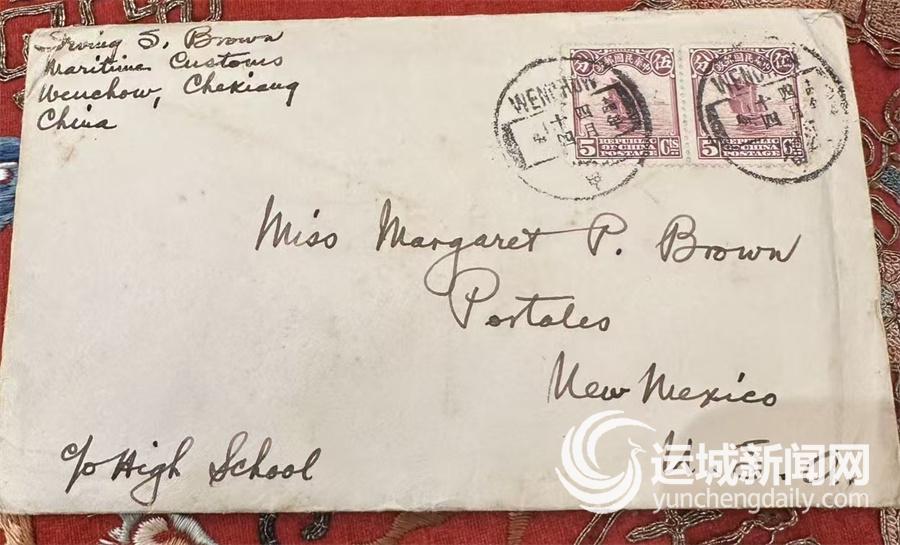 Irving S. Brown
Maritime Customs
Wenchow, Chekiang
China
WENCHOW
四月
十四
分 中華民國郵政 伍
5 REPUBLIC OF CHINA POSTAGE Cts
WENCHOW
四月
十四
分 中華民國郵政 伍
5 REPUBLIC OF CHINA POSTAGE Cts
Miss Margaret P. Brown
Portales
New Mexico
U. S. A.
c/o High School
运城新闻网
yunchengdaily.com